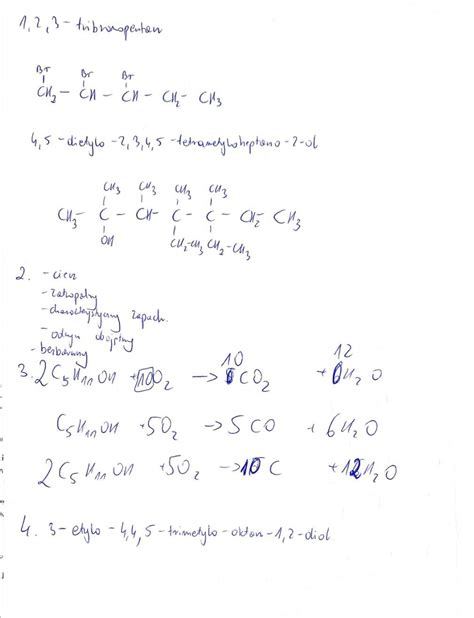 1,2,3 - tribromopentan
Br Br Br
CH2 - CH - CH - CH2 - CH3
4,5 - dietylo - 2,3,4,5 - tetrametyloheptano - 2-ol
CH3 CH3 CH3 CH3
CH3 - C - CH - C - C - CH2 - CH3
OH CH2-CH3 CH2-CH3
2. - ciecz
- zapalny
- charakterystyczny zapach
- odczyn obojętny
- bezbarwny
10 12
3. 2C5H11OH + 10O2 → CO2 + H2O
C5H11OH + 5O2 → 5CO + 6H2O
2C5H11OH + 5O2 → 10C + 12H2O
4. 3 - etylo - 4,4,5 - trimetylo - oktan - 1,2 - diol